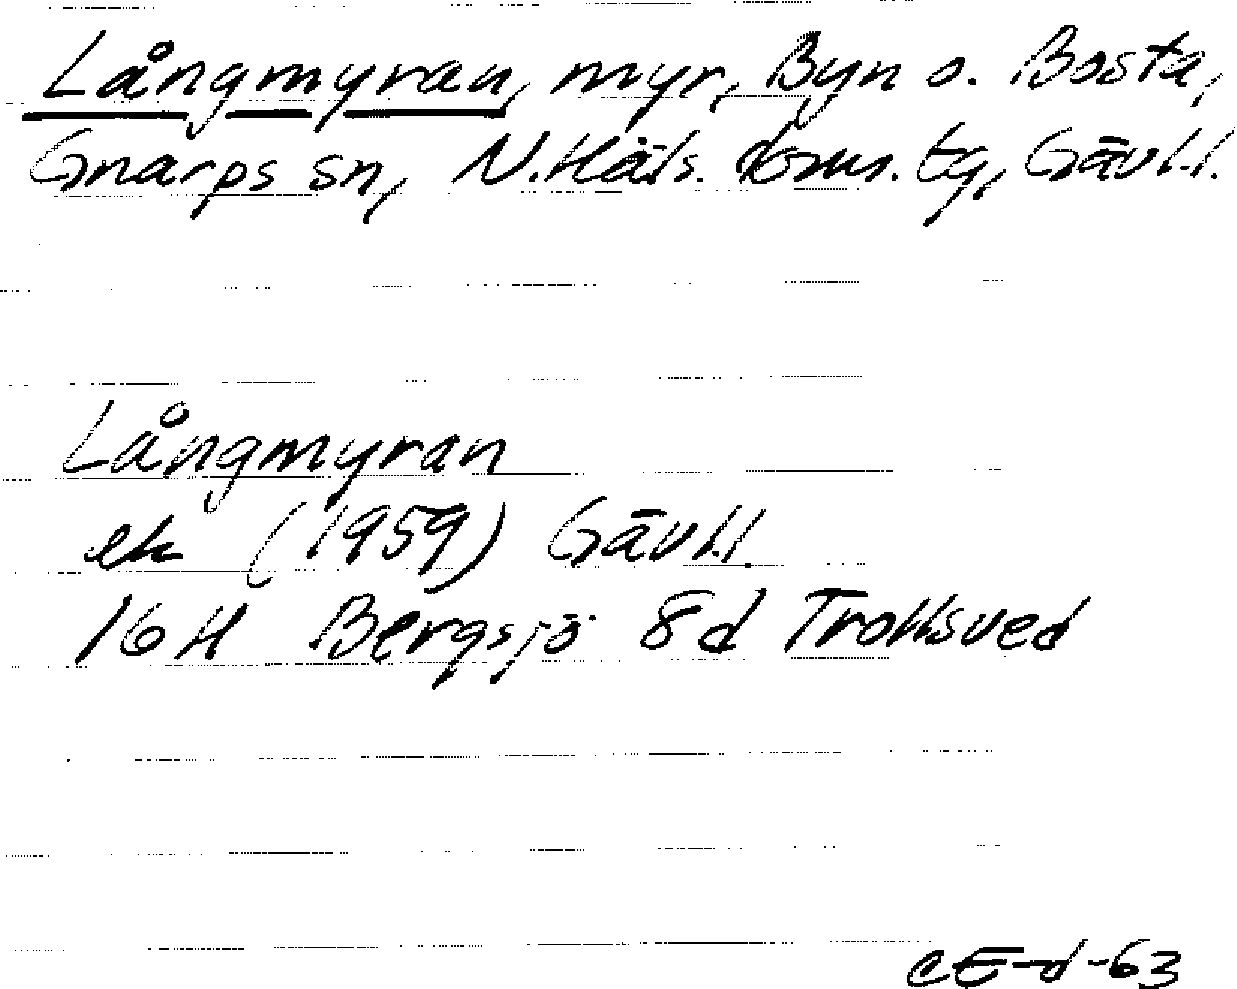 Långmyran, myr, Byn o. Bosta,
Gnarps sn, N.Häls. doms. tg, Gävl.l.
Långmyran
ek (1959) Gävl.l.
16H Bergsjö 8d Trollsved
CE-d-63